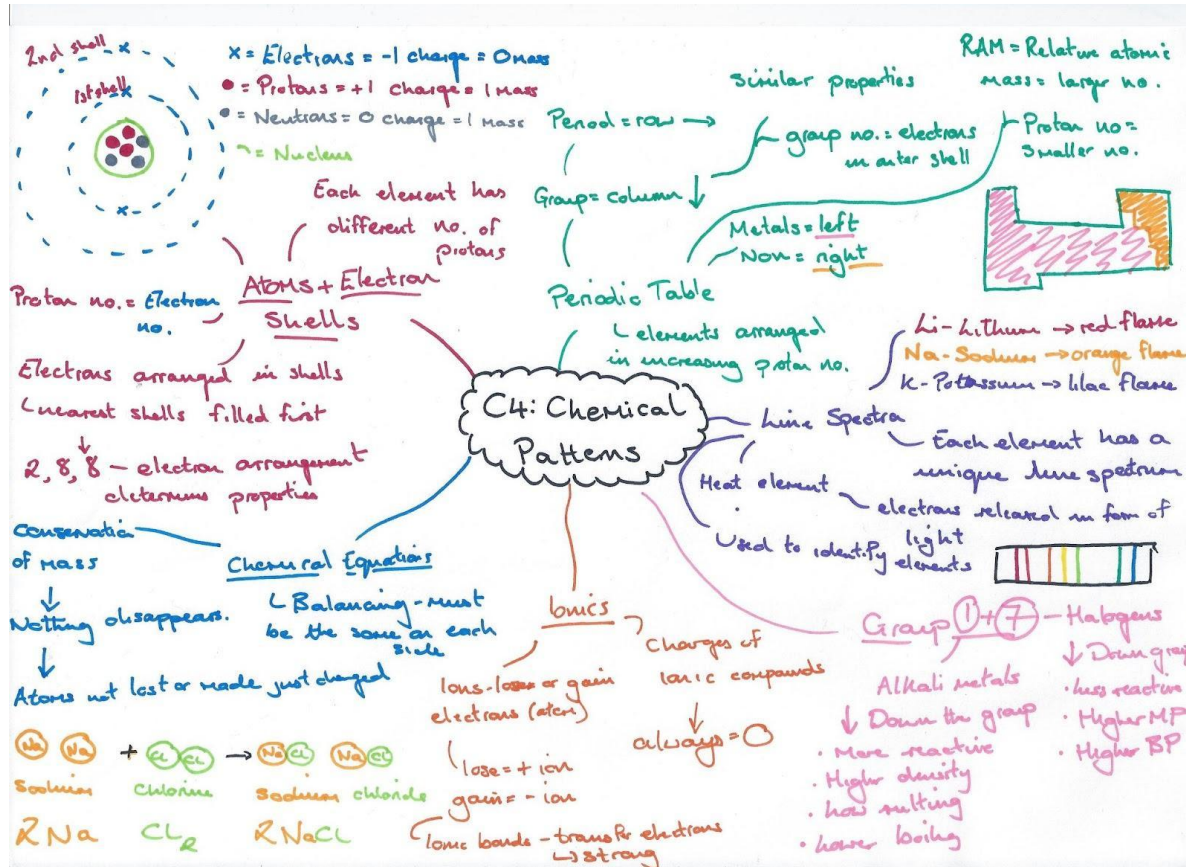 2nd shell
1st shell
x = Electrons = -1 charge = 0 mass
= Protons = +1 charge = 1 Mass
= Neutrons = 0 charge = 1 Mass
= Nucleus
Each element has
different no. of
protons
Atoms + Electron
Shells
Proton no. = Electron
no.
Electrons arranged in shells
nearest shells filled first
2, 8, 8 - electron arrangement
determines properties
Similar properties
Period = row →
group no. = electrons
in outer shell
Group = column ↓
RAM = Relative atomic
mass = larger no.
Proton no =
Smaller no.
Metals = left
Non = right
Periodic Table
elements arranged
in increasing proton no.
C4: Chemical
Patterns
Li - Lithium → red flame
Na - Sodium → orange flame
K - Potassium → lilac flame
Line Spectra
Each element has a
unique line spectrum
Heat element
electrons released in form of
light
Used to identify elements
Conservation
of mass
↓
Nothing disappears.
↓
Atoms not lost or made just changed
Chemical Equations
Balancing - must
be the same on each
side
Na Na + Cl Cl → Na Cl Na Cl
sodium chlorine sodium chloride
2Na CL2 2NaCl
Ionics
Ions - lose or gain
electrons (atom)
lose = + ion
gain = - ion
Ionic bonds - transfer electrons
↳ strong
Charges of
ionic compounds
↓
always = 0
Group 1 + 7 - Halogens
Alkali metals
↓ Down the group
• More reactive
• Higher density
• Low melting
• Lower boiling
↓ Down group
• Less reactive
• Higher MP
• Higher BP